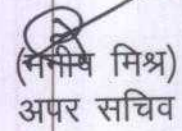 (मनीष मिश्र)
अपर सचिव